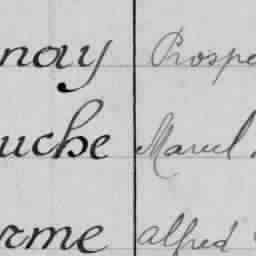 nay Prospe
uche Marcel
rme alfred